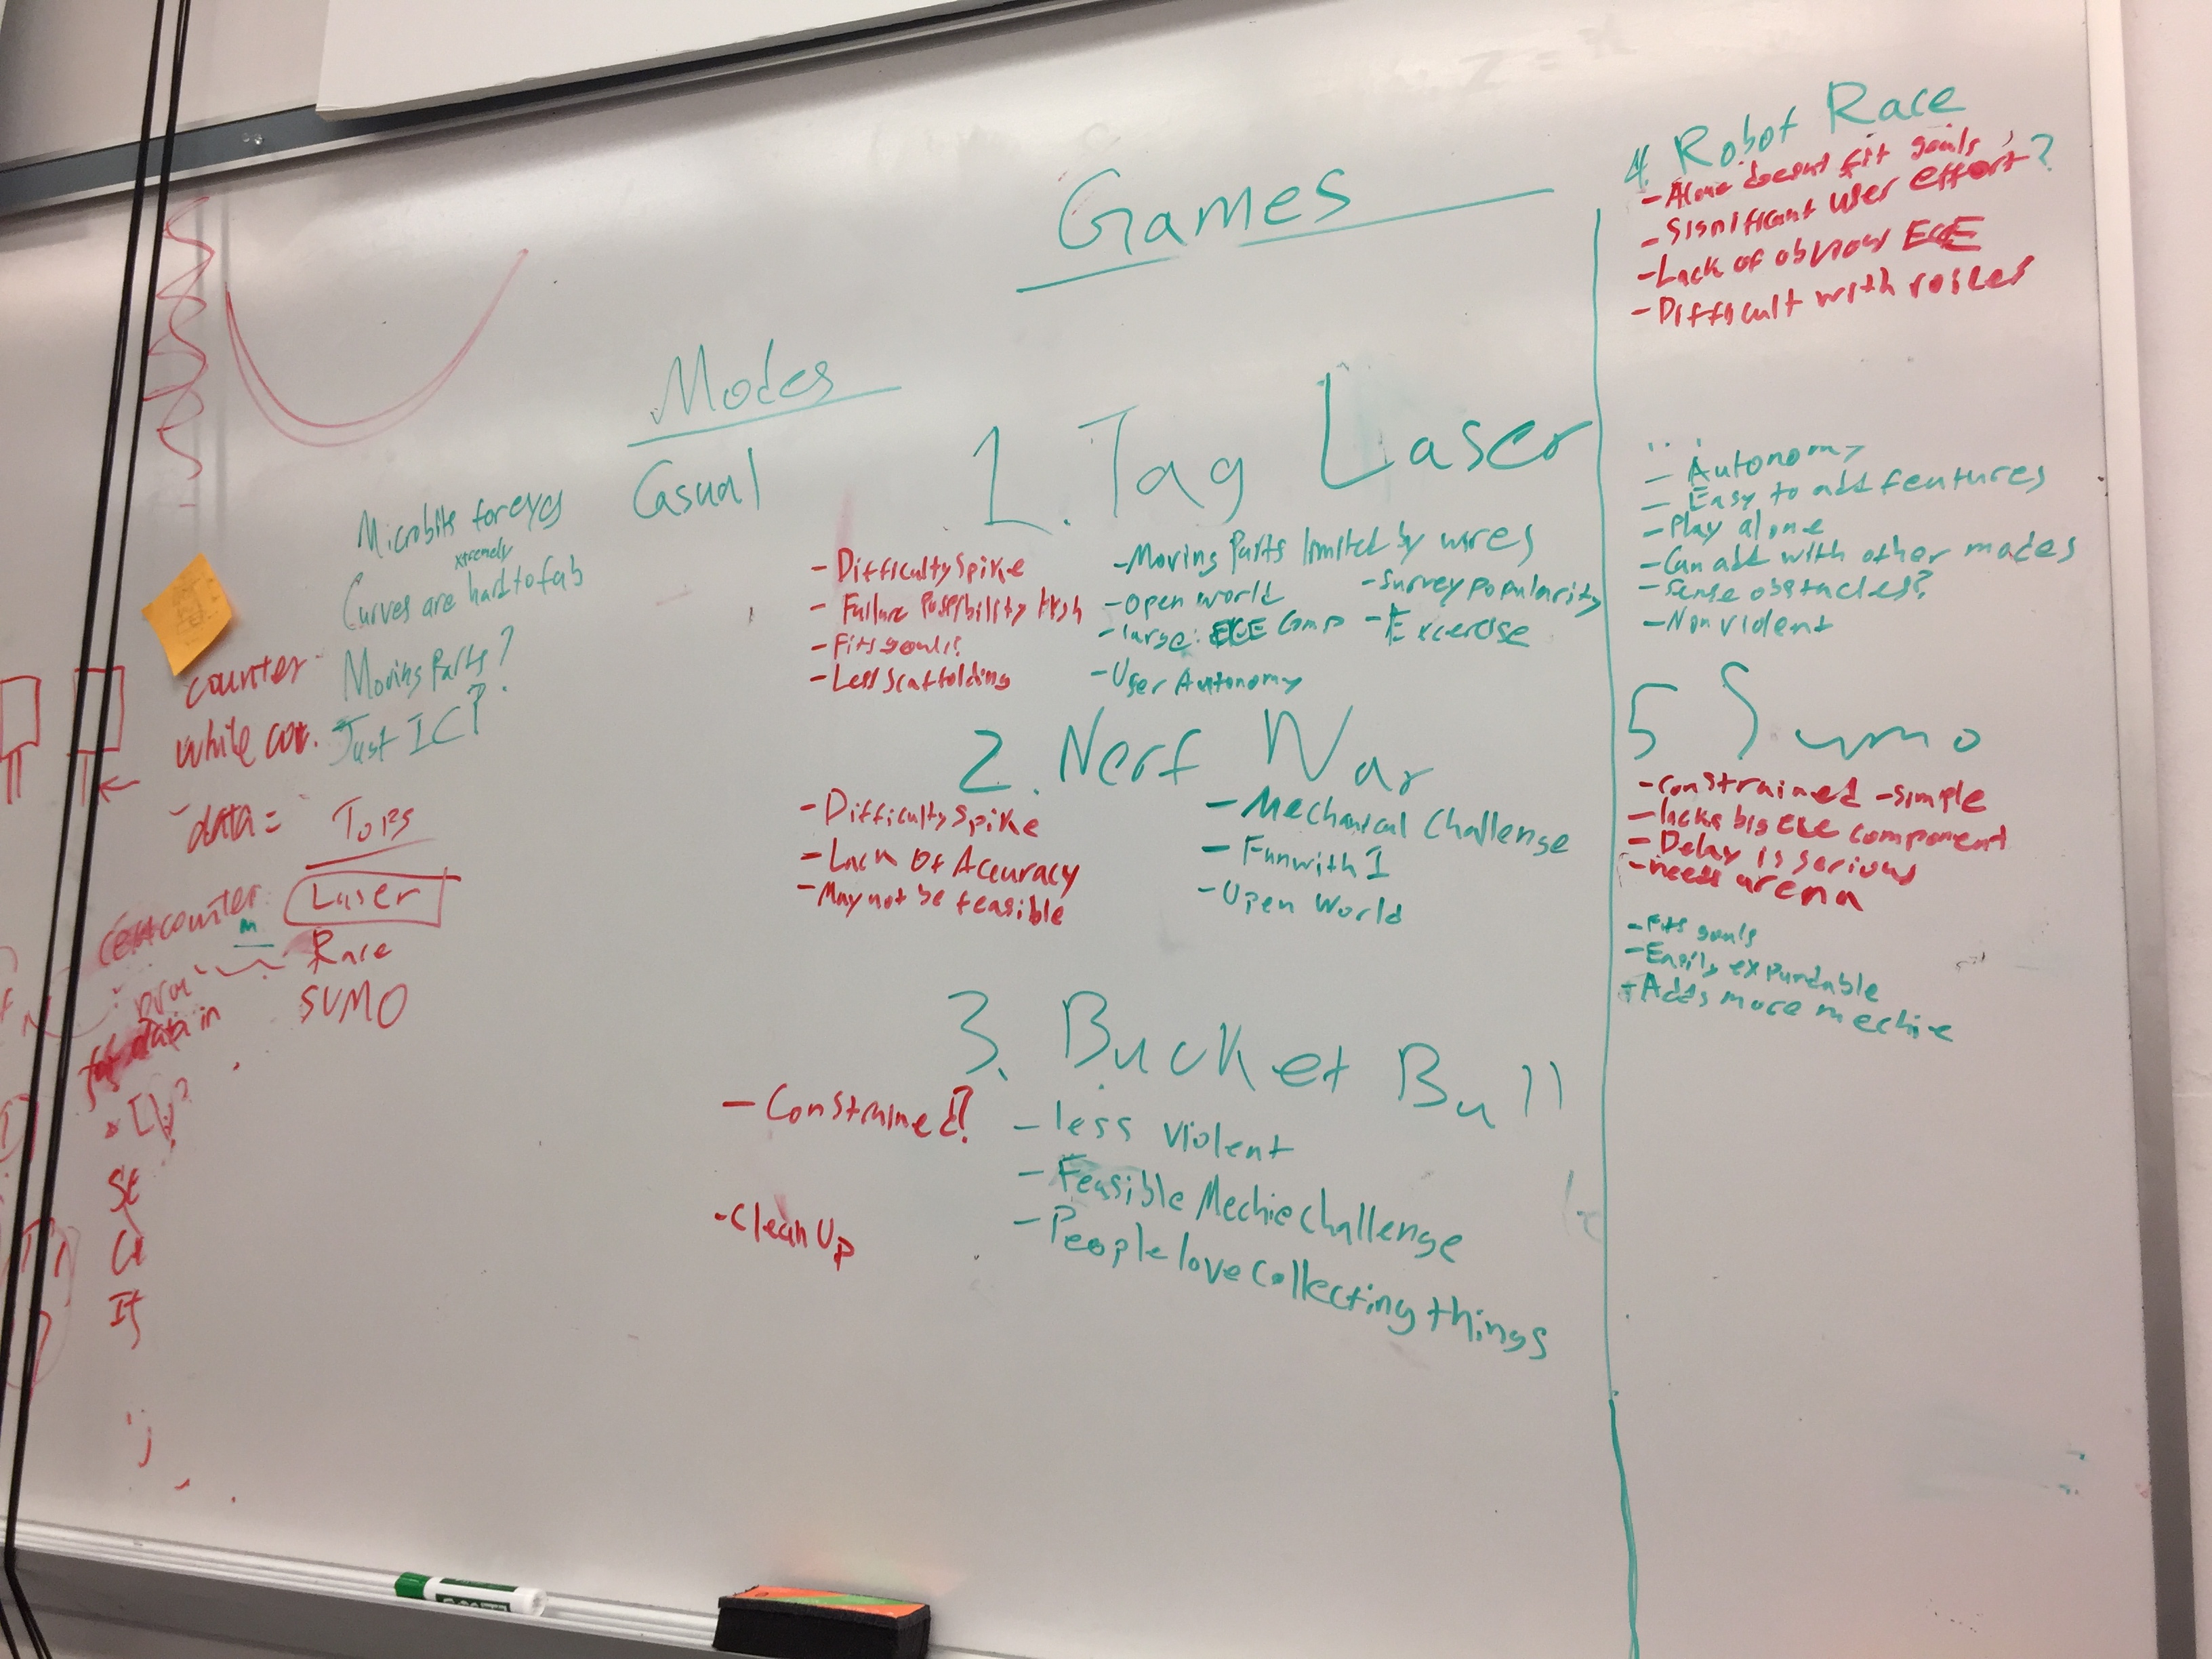 Games
Modes
Casual
Microbits for eyes
xtremely
Curves are hard to fab
Moving Parts?
Just IC?
counter
while cou.
data =
Tops
Laser
Race
SUMO
counter
for data in
St
If
1. Tag Laser
- Difficulty Spike
- Failure Possibility High
- Fits goals?
- Less Scaffolding
- Moving Parts limited by wires
- Open world
- Survey popularity
- large: ECE Comp
- Excercise
- User Autonomy
2. Nerf War
- Difficulty Spike
- Lack Of Accuracy
- May not be feasible
- Mechanical Challenge
- Fun with I
- Open World
3. Bucket Ball
- Constrained?
- Clean Up
- less violent
- Feasible Mechie challenge
- People love Collecting things
4. Robot Race
- Alone doesnt fit goals
- Significant user effort?
- Lack of obvious ECE
- Difficult with
- Autonomy
- Easy to add features
- Play alone
- Can add with other modes
- Sense obstacles?
- Nonviolent
5 Sumo
- constrained - simple
- lacks big ECE component
- Delay is serious
- needs arena
- Fits goals
- Easily expandable
+ Adds more mechie